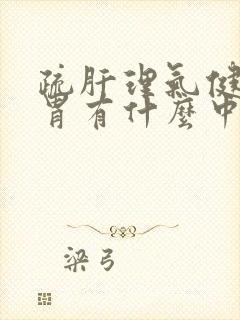 疏肝理氣健
胃有什麼中
梁弓